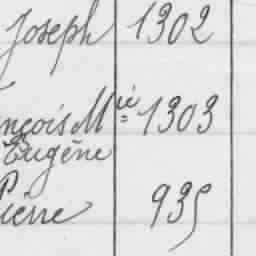 Joseph 1302
nçois Mie 1303
Eugène
Pierre 935